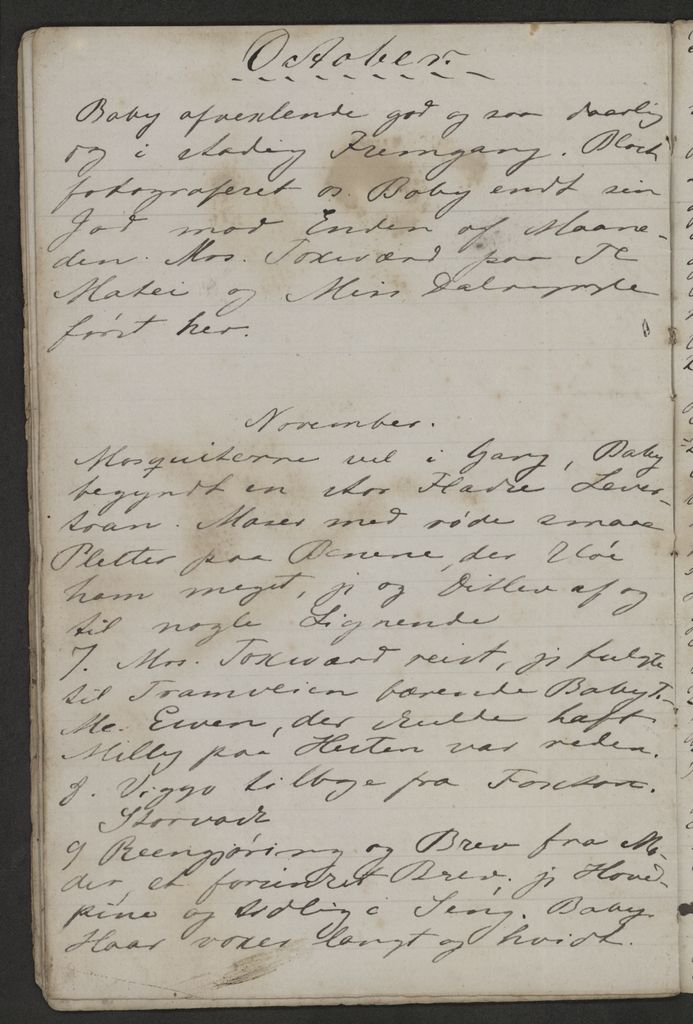 October.
Baby afvexlende god og saa daarlig
og i stadig Fremgang. Bloch
fotograferet os. Baby endt sin
Jod mod Enden af Maane-
den. Mrs. Toxward paa Te
Matei og Miss Dalrymple
først her.
November.
Mosquiterne vel i Gang, Baby
begyndt en stor Fladse Lever-
tran. Maser med røde smaae
Pletter paa Benene, der Kløe
ham meget, jg og Ditlev af og
til nogle Lignende
7. Mrs. Toxward reist, jg fulgte
til Tramveien bærende Baby T.
Mc. Ewen, der skulde haft
Milly paa Hesten var reden.
8. Viggo tilbage fra Foxton.
Storvask
9 Reengjøring og Brev fra Mo-
der, et Brev. jg Hoved-
pine og tidlig i Seng. Baby
Haar voxer langt og hvidt.